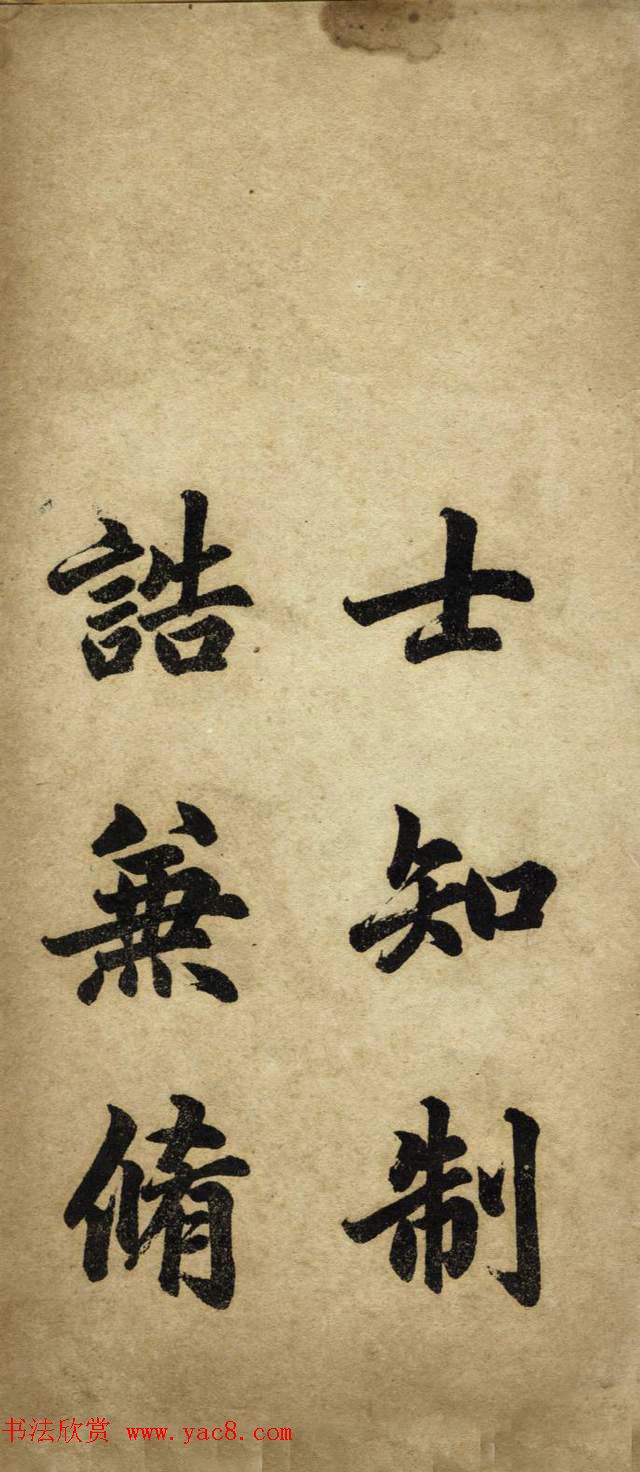 士知制
誥兼脩
书法欣赏 www.yac8.com